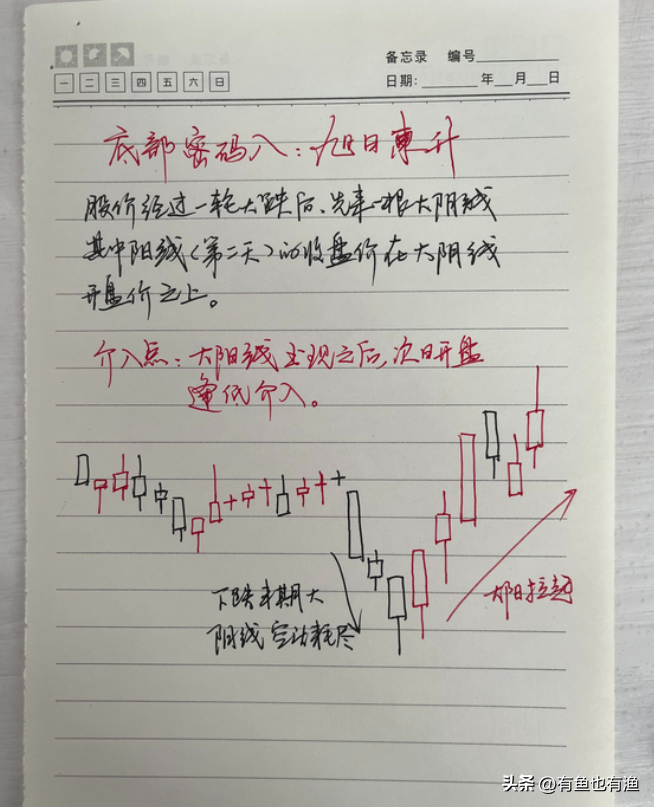 备忘录 编号
一 二 三 四 五 六 日
日期: 年 月 日
底部密码八：旭日東升
股价经过一轮大跌后、先来一根大阴线
其中阳线（第二天）的收盘价在大阴线
开盘价之上。
介入点：大阳线出现之后，次日开盘
逢低介入。
下跌末期大
阴线空方耗尽
大阳拉起
头条 @有鱼也有渔